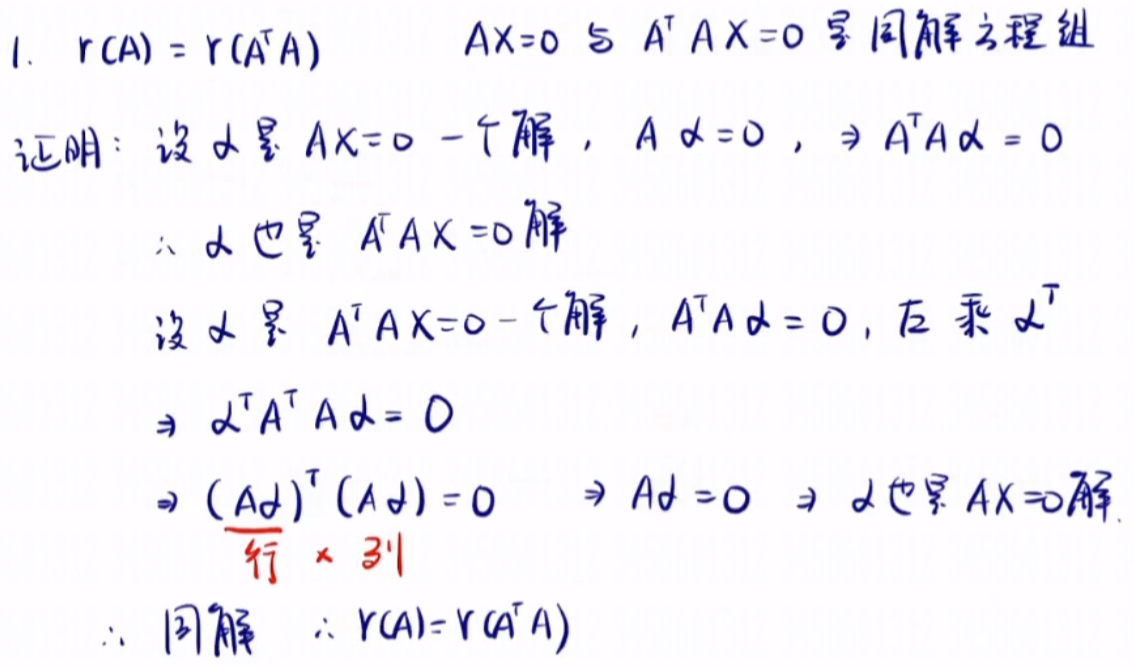 1. r(A) = r(AᵀA) AX=0 与 AᵀAX=0 是同解方程组
证明: 设 α 是 AX=0 一个解, Aα=0, ⇒ AᵀAα = 0
∴ α 也是 AᵀAX=0 解
设 α 是 AᵀAX=0 一个解, AᵀAα = 0, 左乘 αᵀ
⇒ αᵀAᵀAα = 0
⇒ (Aα)ᵀ(Aα) = 0 ⇒ Aα=0 ⇒ α也是 AX=0解.
行 × 列
∴ 同解 ∴ r(A)=r(AᵀA)